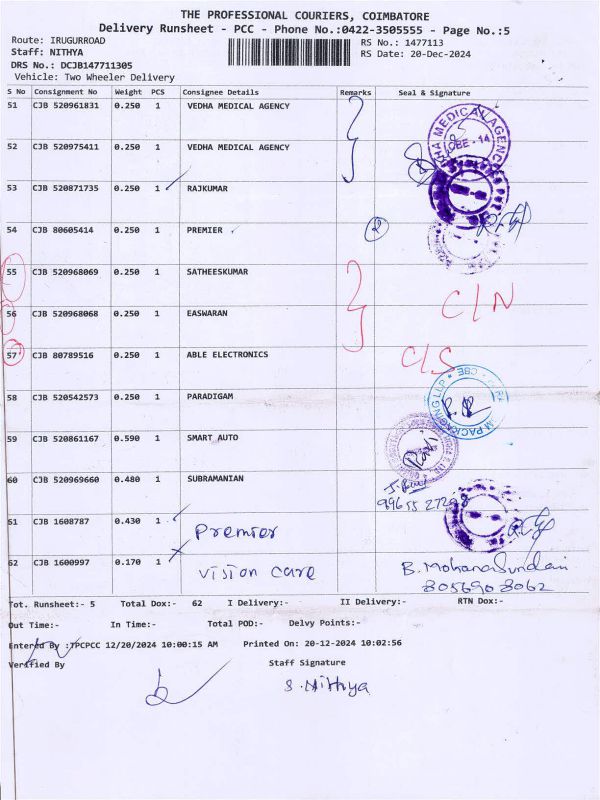 THE PROFESSIONAL COURIERS, COIMBATORE
Delivery Runsheet - PCC - Phone No.:0422-3505555 - Page No.:5
Route: IRUGURROAD
RS No.: 1477113
Staff: NITHYA
RS Date: 20-Dec-2024
DRS No.: DCJB147711305
Vehicle: Two Wheeler Delivery
S No Consignment No Weight PCS Consignee Details Remarks Seal & Signature
51 CJB 520961831 0.250 1 VEDHA MEDICAL AGENCY
52 CJB 520975411 0.250 1 VEDHA MEDICAL AGENCY
53 CJB 520871735 0.250 1 RAJKUMAR
54 CJB 80605414 0.250 1 PREMIER
55 CJB 520968069 0.250 1 SATHEESKUMAR
56 CJB 520968068 0.250 1 EASWARAN C/N
57 CJB 80789516 0.250 1 ABLE ELECTRONICS C/S
58 CJB 520542573 0.250 1 PARADIGAM
59 CJB 520861167 0.590 1 SMART AUTO
60 CJB 520969660 0.480 1 SUBRAMANIAN
61 CJB 1608787 0.430 1 Premier
62 CJB 1600997 0.170 1 Vision care B. Mohanasundari
8056903062
Tot. Runsheet:- 5 Total Dox:- 62 I Delivery:- II Delivery:- RTN Dox:-
Out Time:- In Time:- Total POD:- Delvy Points:-
Entered By :TPCPCC 12/20/2024 10:00:15 AM Printed On: 20-12-2024 10:02:56
Verified By Staff Signature
S. Nithya